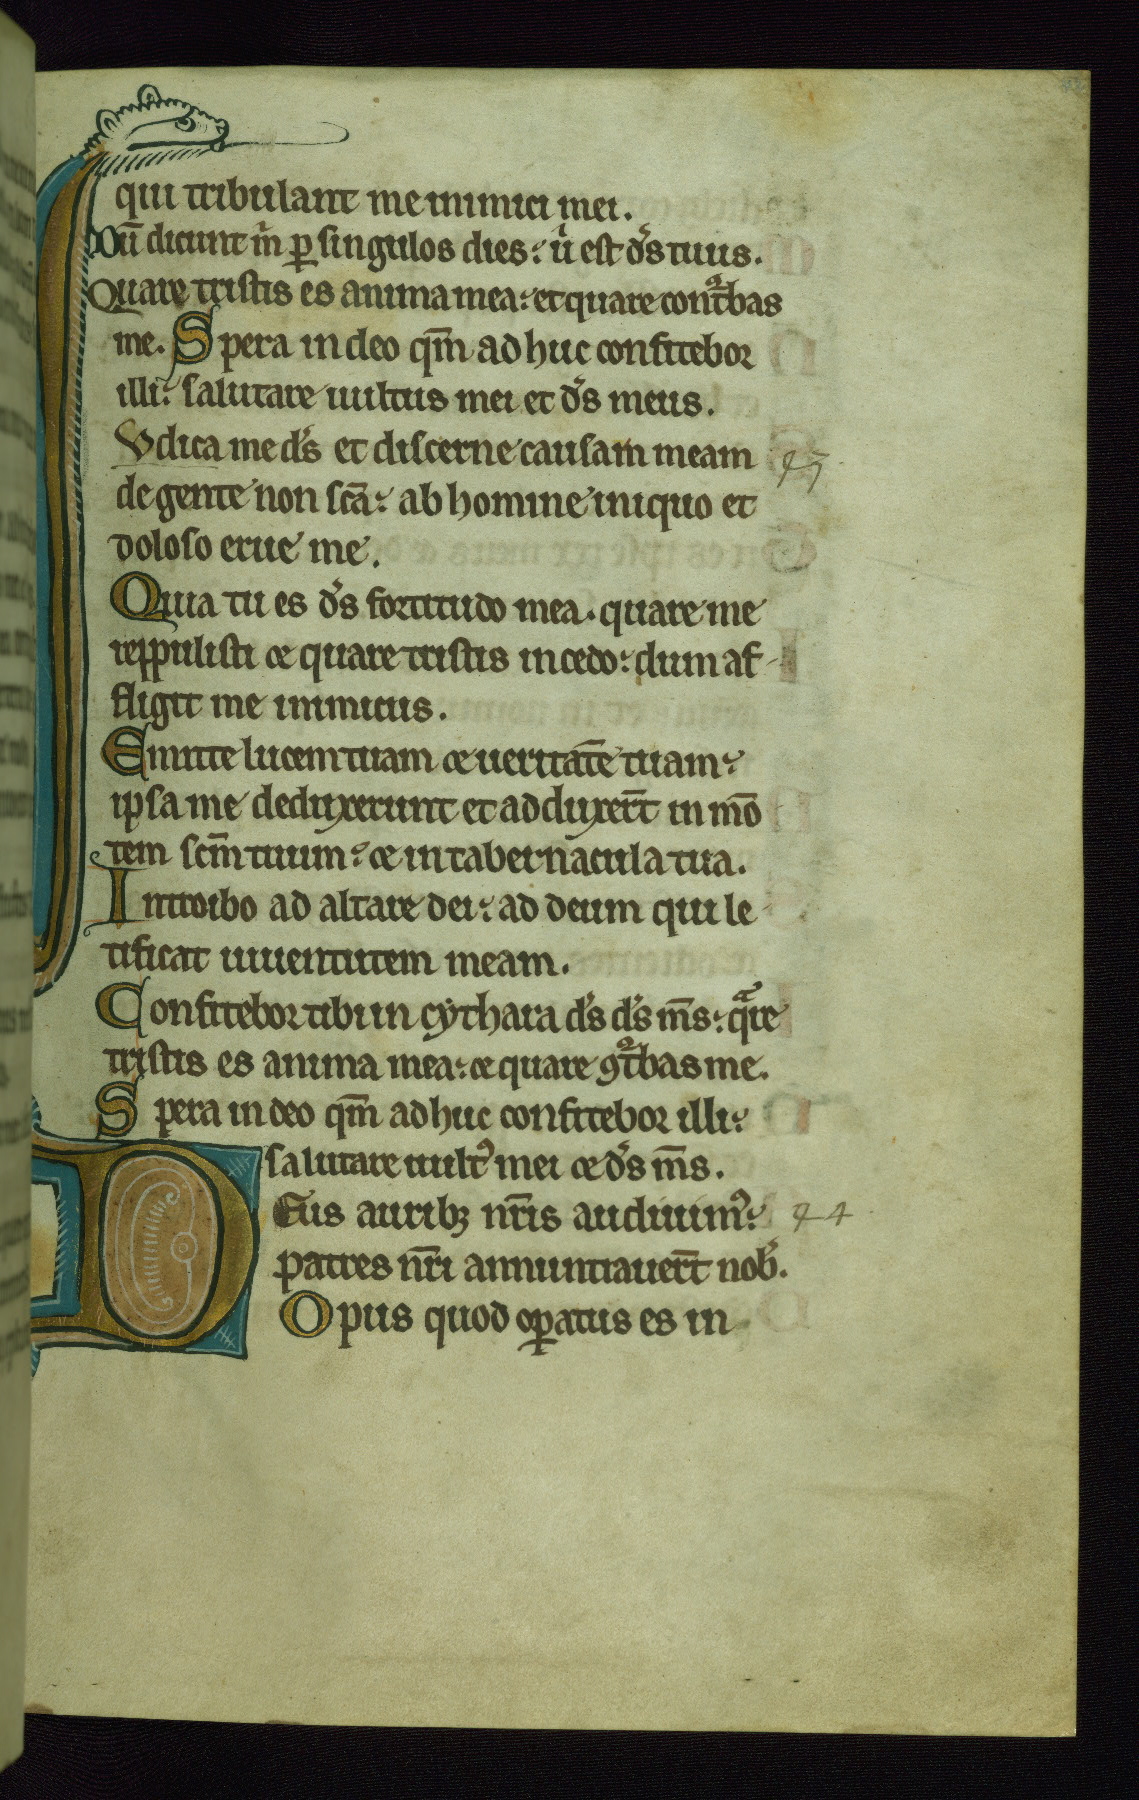 qui tribulant me inimici mei.
Dū dicunt m̄ ꝑ singulos dies: ůi est d̄s tuus.
Quare tristis es anima mea: et quare cont̄bas
me. Spera in deo qm̄ adhuc confitebor
illi: salutare uultus mei et d̄s meus.
Vdica me d̄s et discerne causam meam 43
de gente non scā: ab homine iniquo et
doloso erue me.
Quia tu es d̄s fortitudo mea. quare me
reppulisti et quare tristis incedo: dum af-
fligit me inimicus.
Emitte lucem tuam et ueritatē tuam:
ipsa me deduxerunt et adduxer̄t in mō
tem scm̄ tuum: et in tabernacula tua.
Introibo ad altare dei: ad deum qui le
tificat iuuentutem meam.
Confitebor tibi in cythara d̄s d̄s m̄s: qᷓre
tristis es anima mea: et quare ꝯt̄bas me.
Spera in deo qm̄ adhuc confitebor illi:
salutare uultꝰ mei et d̄s m̄s.
DEus auribꝫ nr̄is audiuimꝰ: 44
patres nr̄i annuntiauer̄t nob̄.
Opus quod oꝑatus es in